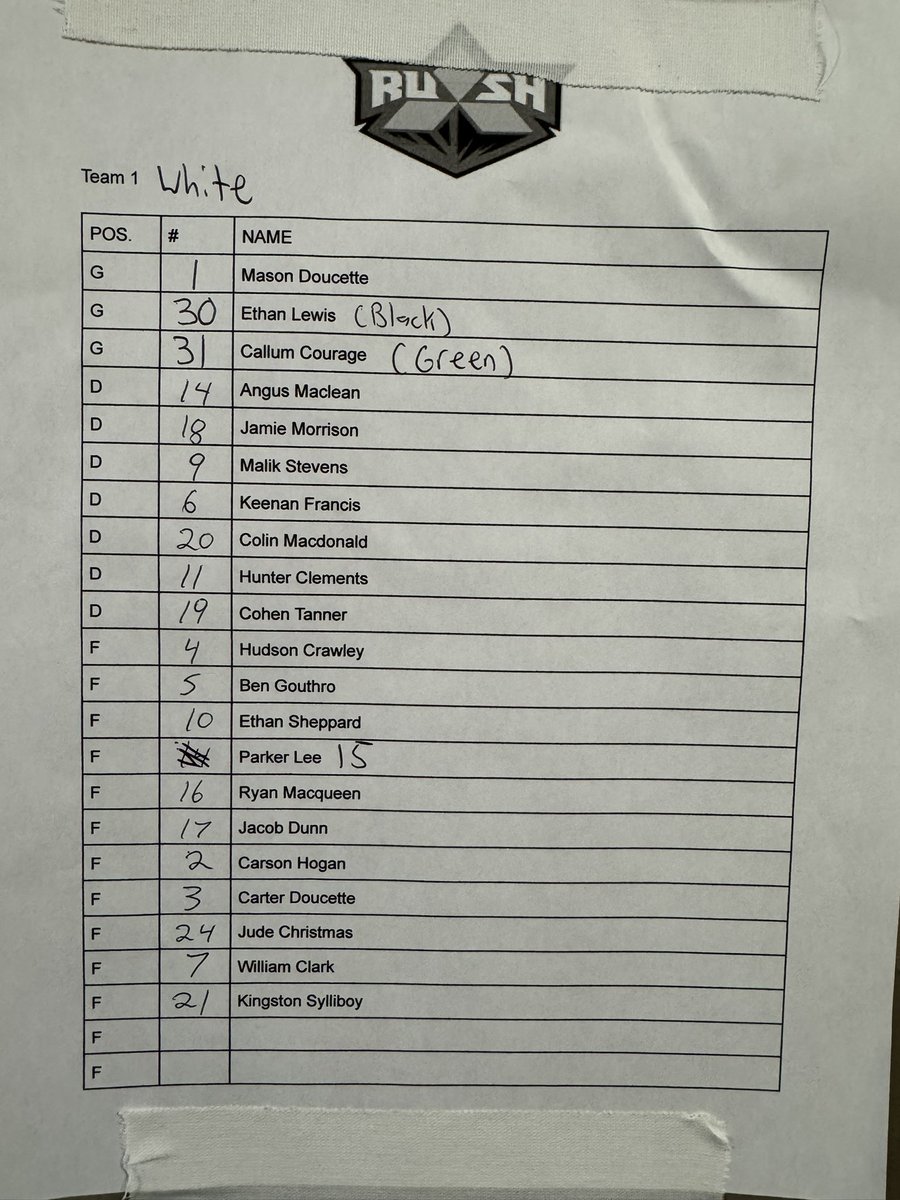 RUSH
Team 1 White
POS. # NAME
G 1 Mason Doucette
G 30 Ethan Lewis (Black)
G 31 Callum Courage (Green)
D 14 Angus Maclean
D 18 Jamie Morrison
D 9 Malik Stevens
D 6 Keenan Francis
D 20 Colin Macdonald
D 11 Hunter Clements
D 19 Cohen Tanner
F 4 Hudson Crawley
F 5 Ben Gouthro
F 10 Ethan Sheppard
F Parker Lee 15
F 16 Ryan Macqueen
F 17 Jacob Dunn
F 2 Carson Hogan
F 3 Carter Doucette
F 24 Jude Christmas
F 7 William Clark
F 21 Kingston Sylliboy
F
F